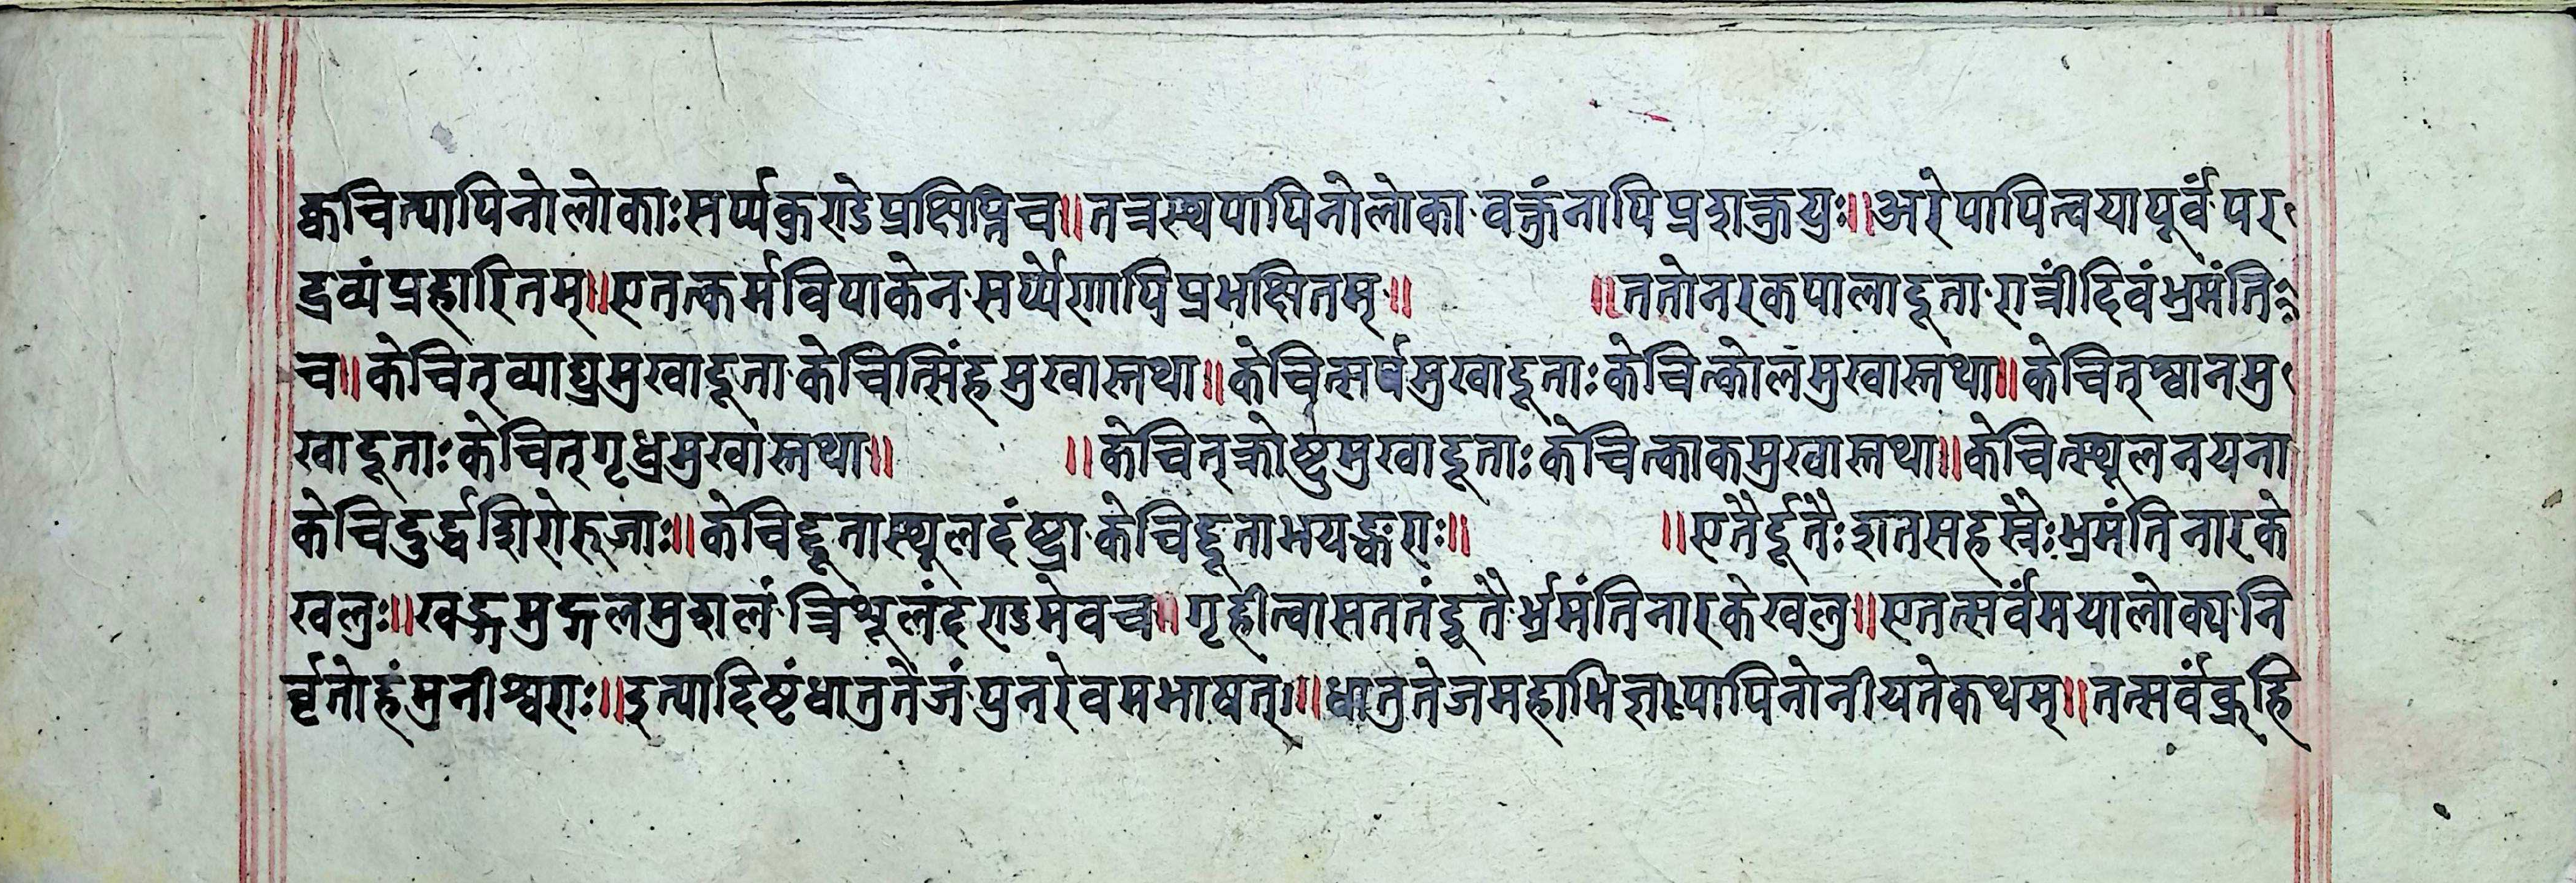 क्वचित्पापिनोलोकाःसर्प्पकुराडेप्रक्षिप्तिच॥तत्रस्थपापिनोलोका·वक्तुंनापिप्रशक्नुयुः॥अरेपापित्वयापूर्वंपर
द्रव्यंप्रहारितम्॥एतत्कर्मविपाकेन·सर्प्पेणापिप्रभक्षितम्॥ ॥ततोनरकपालादूता·रात्रींदिवंभ्रमंति
च॥केचित्व्याघ्रमुखादूता·केचित्सिंहमुखास्तथा॥केचित्सर्षमुखादूताः केचित्कोलमुखास्तथा॥केचित्श्वानमु
खादूताः केचित्गृध्रमुखास्तथा॥ ॥केचित्क्रोष्टुमुखादूताः केचित्काकमुखास्तथा॥केचित्स्थूलनयना
केचिदुर्द्धशिरोरुजाः॥केचिद्दूतास्थूलदंष्ट्रा·केचिद्दूताभयङ्कराः॥ ॥एतैर्दूतैःशतसहस्रैःभ्रमंतिनारके
खलुः॥खड्गमुद्गलमुशलं·त्रिशूलंदराडमेवच॥गृहीत्वासततंदूतैर्भ्रमंतिनारकेखलु॥एतत्सर्वंमयालोक्य·नि
र्वृतोहंमुनीश्वराः॥इत्यादिष्टंधातुतेजं·पुनरेवमभाषत्॥धातुतेजमहाभिज्ञ·पापिनोनीयतेकथम्॥तत्सर्वंब्रूहि